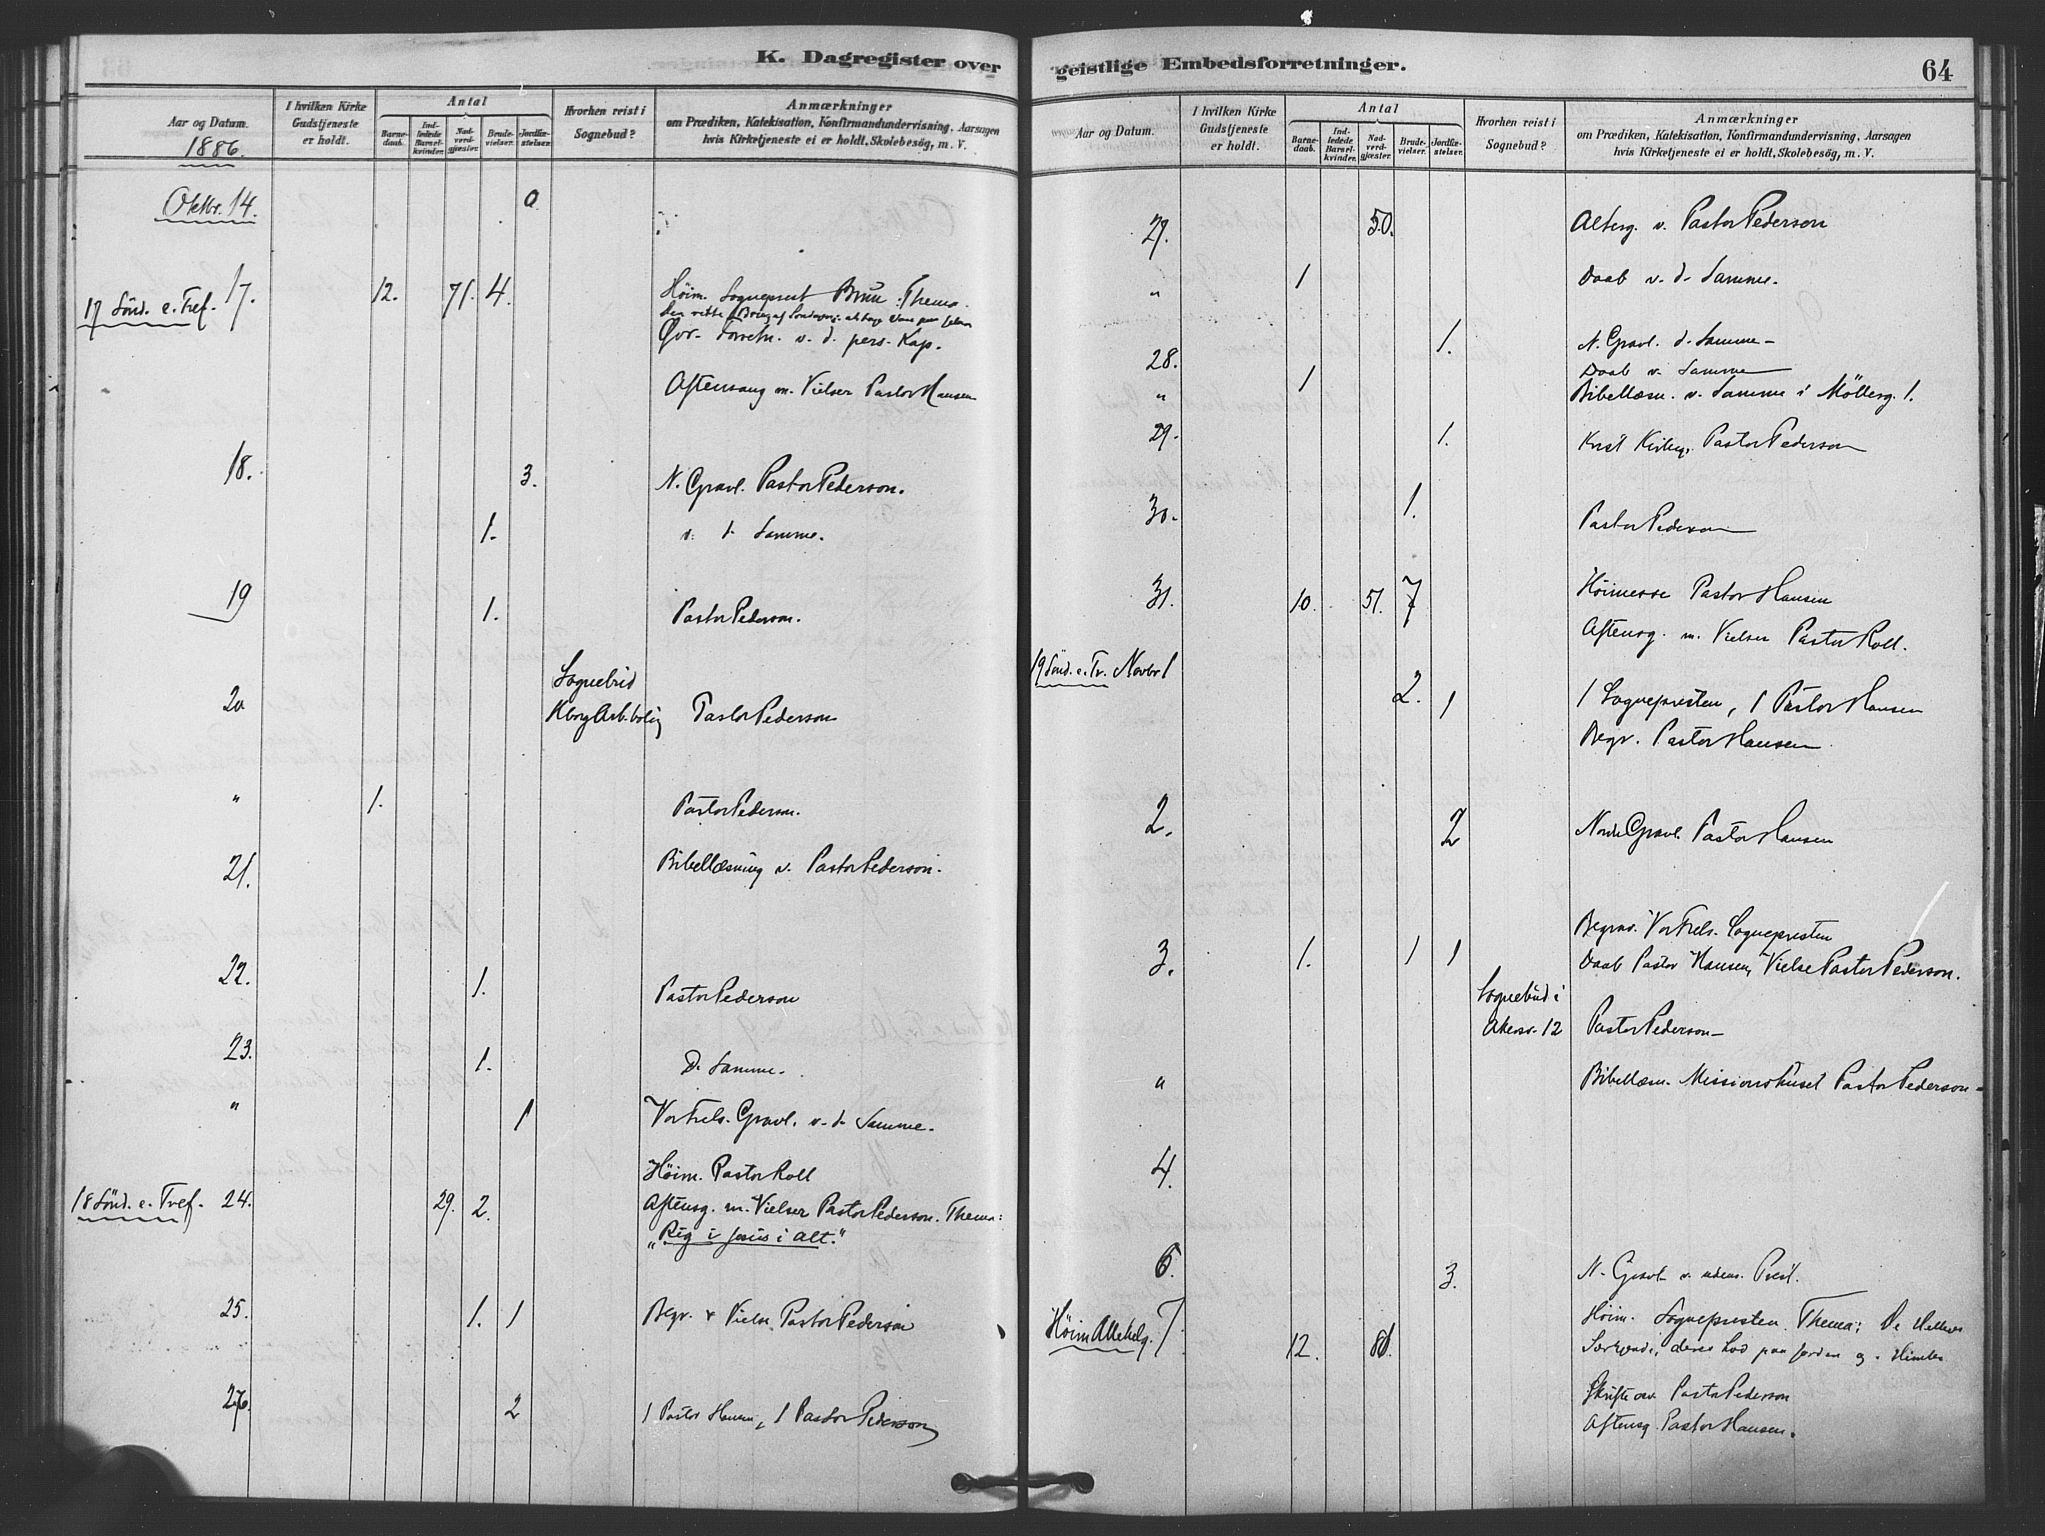 K. Dagregister over
Aar og Datum.
1886.
I hvilken Kirke Gudstjeneste er holdt.
Antal
Barnedaab.
Indledede Barselkvinder.
Nadverdgjæster.
Brudevielser.
Jordfæstelser.
Hvorhen reist i Sognebud?
Anmærkninger
om Prædiken, Katekisation, Konfirmandundervisning, Aarsagen
hvis Kirketjeneste ei er holdt, Skolebesøg, m. V.
Oktbr. 14. 0
17 Sönd. e. Tref. 17. 12. 71. 4. Höim. Sogneprest Brun. Thema
Den rette
Övr. Forretn. v. d. pers. Kap.
Aftensang m. Vielser Pastor Hansen
18. 3. N. Gravl. Pastor Pederson.
1. v. d. Samme.
19 1. Pastor Pederson.
Sognebud
20 Pastor Pederson
" 1. Pastor Pederson.
21. Bibellæsning v. Pastor Pederson.
22. 1. Pastor Pederson
23. 1. D. Samme.
" 1 Vor Frels. Gravl. v. d. Samme.
Höim. Pastor Roll
18 Sönd. e. Tref. 24. 29. 2. Aftensg. m. Vielser Pastor Pederson. Thema:
"Rig i Jesus i alt."
25. 1. 1 Begr. & Vielse Pastor Pederson
26. 2 1 Pastor Hansen, 1 Pastor Pederson
geistlige Embedsforretninger.
64
Aar og Datum.
I hvilken Kirke Gudstjeneste er holdt.
Antal
Barnedaab.
Indledede Barselkvinder.
Nadverdgjæster.
Brudevielser.
Jordfæstelser.
Hvorhen reist i Sognebud?
Anmærkninger
om Prædiken, Katekisation, Konfirmandundervisning, Aarsagen
hvis Kirketjeneste ei er holdt, Skolebesøg, m. V.
27. 50. Alterg. v. Pastor Pederson
" 1 Daab v. d. Samme.
28. 1. N. Gravl. d. Samme
" 1 Daab v. Samme
Bibellæsn. v. Samme i Möllerg. 1.
29. 1. Krist Kirkeg. Pastor Pederson
30. 1. Pastor Pederson
31. 10. 51. 7 Höimesse Pastor Hansen
Aftensg. m. Vielser Pastor Roll.
19 Sönd. e. Tr. Novbr 1 2. 1 1 Sognepresten, 1 Pastor Hansen
Begr. Pastor Hansen
2. 2 Nordr Gravl. Pastor Hansen
Begrav. Vor Frels. Sognepresten
3. 1. 1 1 Daab Pastor Hansen, Vielse Pastor Pederson.
Sognebud i
Akersv. 12 Pastor Pederson
" Bibellæsn. Missionshuset Pastor Pederson
4.
6. 3. N. Gravl v. udens. Prest.
Höim Allehelg. 7. 12. Höim. Sognepresten Thema: De Helliges
Særkjende, deres Lod paa Jorden og i Himlen
Skriftetal Pastor Pederson
Aftensg. Pastor Hansen.